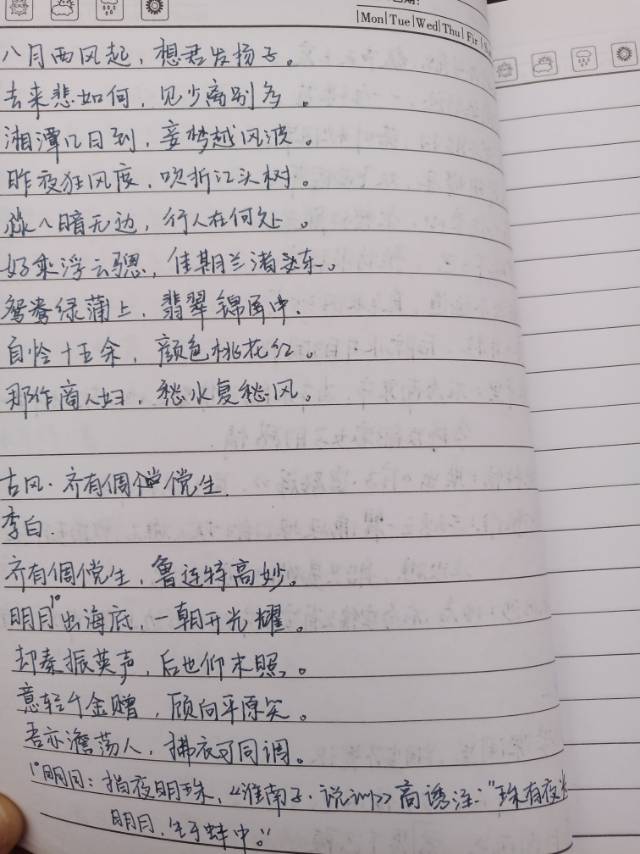 Mon Tue Wed Thu Fri
八月西风起，想君发扬子。
去来悲如何，见少离别多。
湘潭几日到，妾梦越风波。
昨夜狂风度，吹折江头树。
淼淼暗无边，行人在何处。
好乘浮云骢，佳期兰渚东。
鸳鸯绿蒲上，翡翠锦屏中。
自怜十五余，颜色桃花红。
那作商人妇，愁水复愁风。
古风·齐有倜傥生
李白.
齐有倜傥生，鲁连特高妙。
明月1°出海底，一朝开光耀。
却秦振英声，后世仰末照。
意轻千金赠，顾向平原笑。
吾亦澹荡人，拂衣可同调。
1°明月：指夜明珠，《淮南子·说训》高诱注："珠有夜光
明月，生于蚌中。"